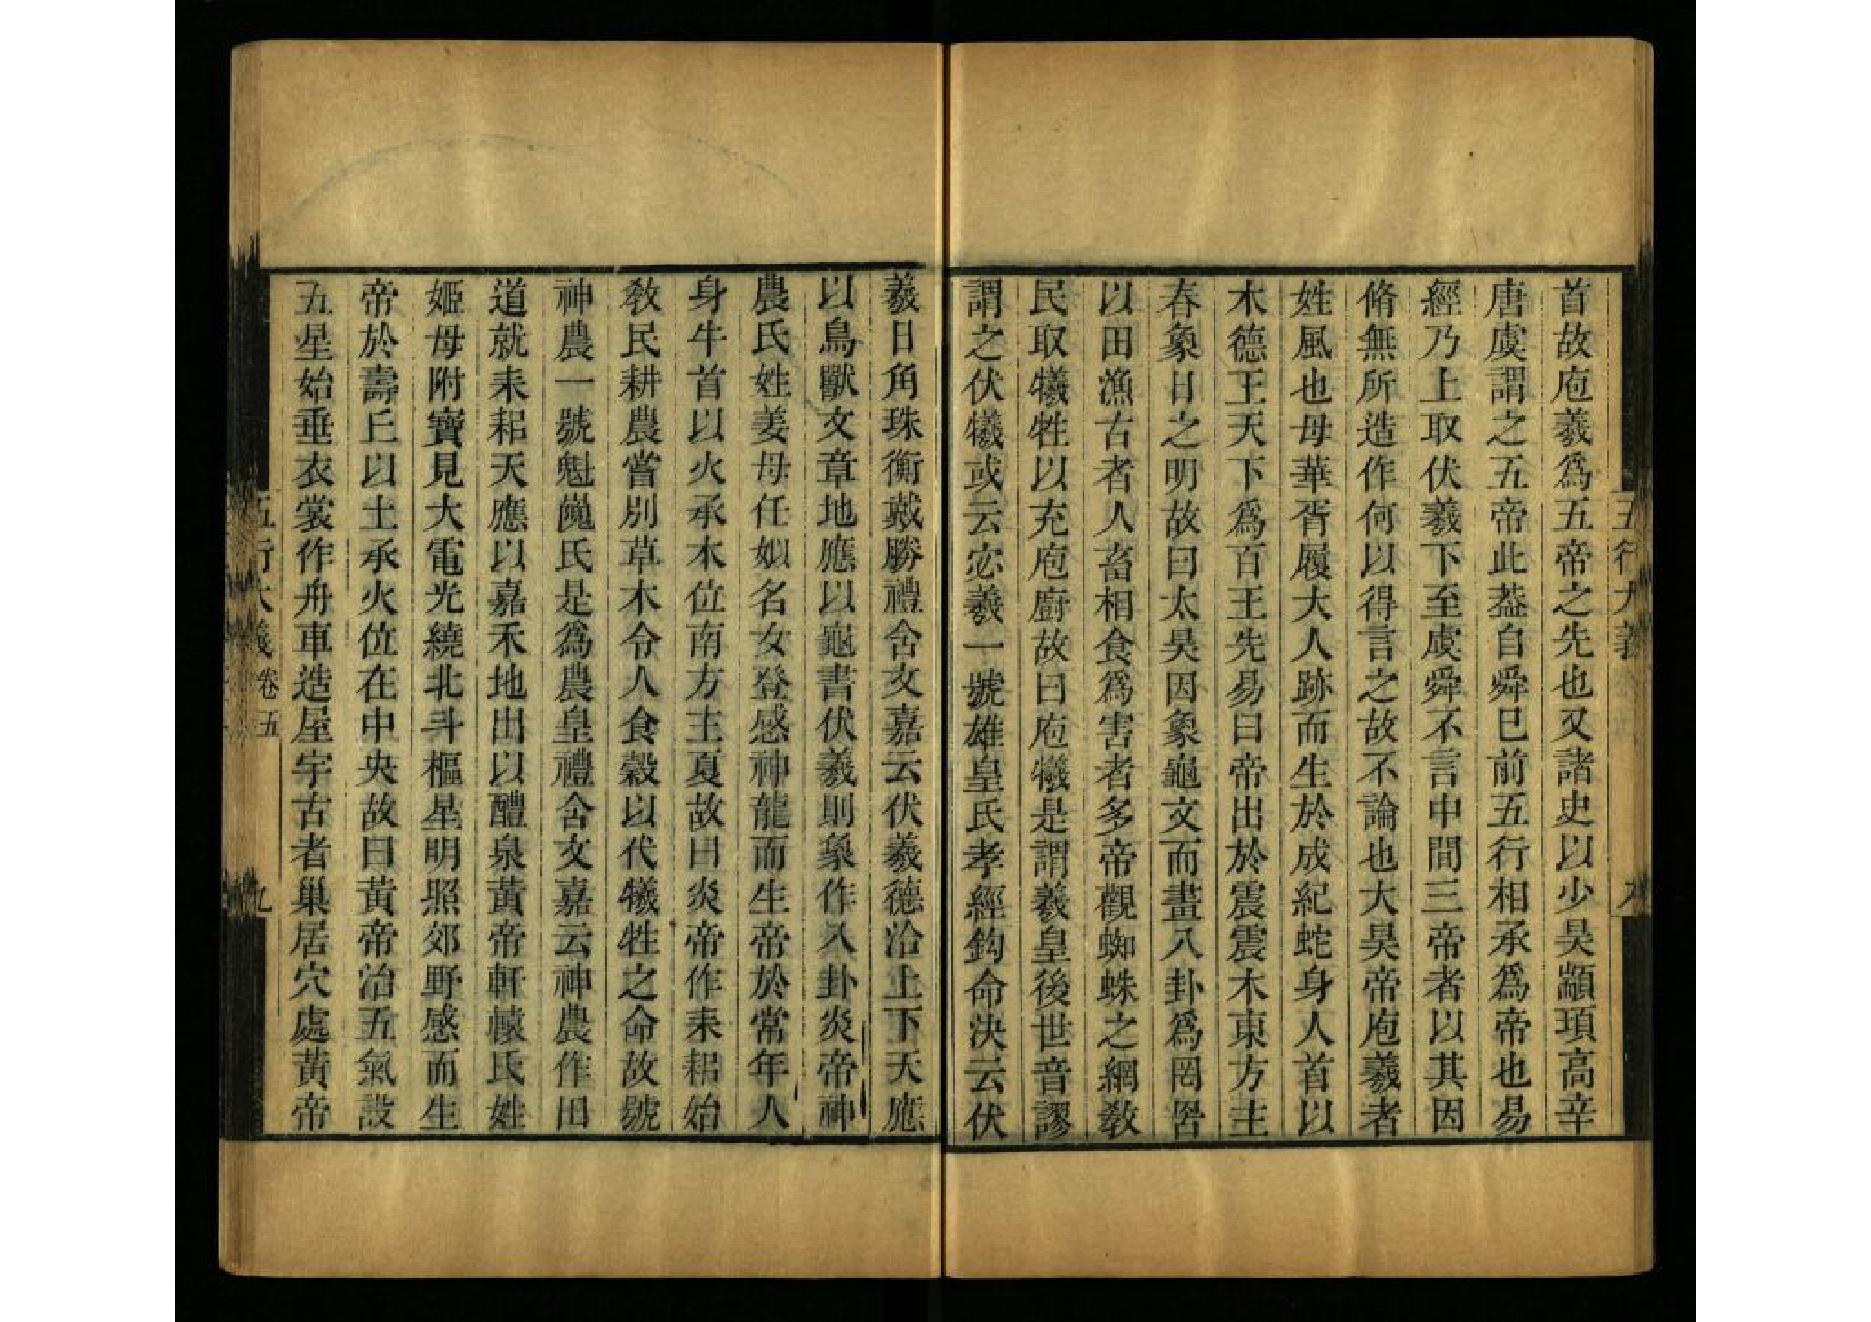 五行大義
首故庖羲爲五帝之先也又諸史以少昊顓頊高辛
唐虞謂之五帝此葢自舜巳前五行相承爲帝也易
經乃上取伏羲下至虞舜不言中間三帝者以其因
脩無所造作何以得言之故不論也大昊帝庖羲者
姓風也母華胥履大人跡而生於成紀蛇身人首以
木德王天下爲百王先易曰帝出於震震木東方主
春象日之明故曰太昊因象龜文而畫八卦爲罔罟
以田漁古者人畜相食爲害者多帝觀蜘蛛之網敎
民取犧牲以充庖廚故曰庖犧是謂羲皇後世音謬
謂之伏犧或云宓羲一號雄皇氏孝經鈎命決云伏
羲日角珠衡戴勝禮含文嘉云伏羲德洽上下天應
以鳥獸文章地應以龜書伏羲則象作八卦炎帝神
農氏姓姜母任姒名女登感神龍而生帝於常年人
身牛首以火承木位南方主夏故曰炎帝作耒耜始
敎民耕農嘗別草木令人食穀以代犧牲之命故號
神農一號魁巍氏是爲農皇禮含文嘉云神農作田
道就耒耜天應以嘉禾地出以醴泉黃帝軒轅氏姓
姬母附寶見大電光繞北斗樞星明照郊野感而生
帝於壽丘以土承火位在中央故曰黃帝治五氣設
五星始垂衣裳作舟車造屋宇古者巢居穴處黃帝
五行大義 卷五
九